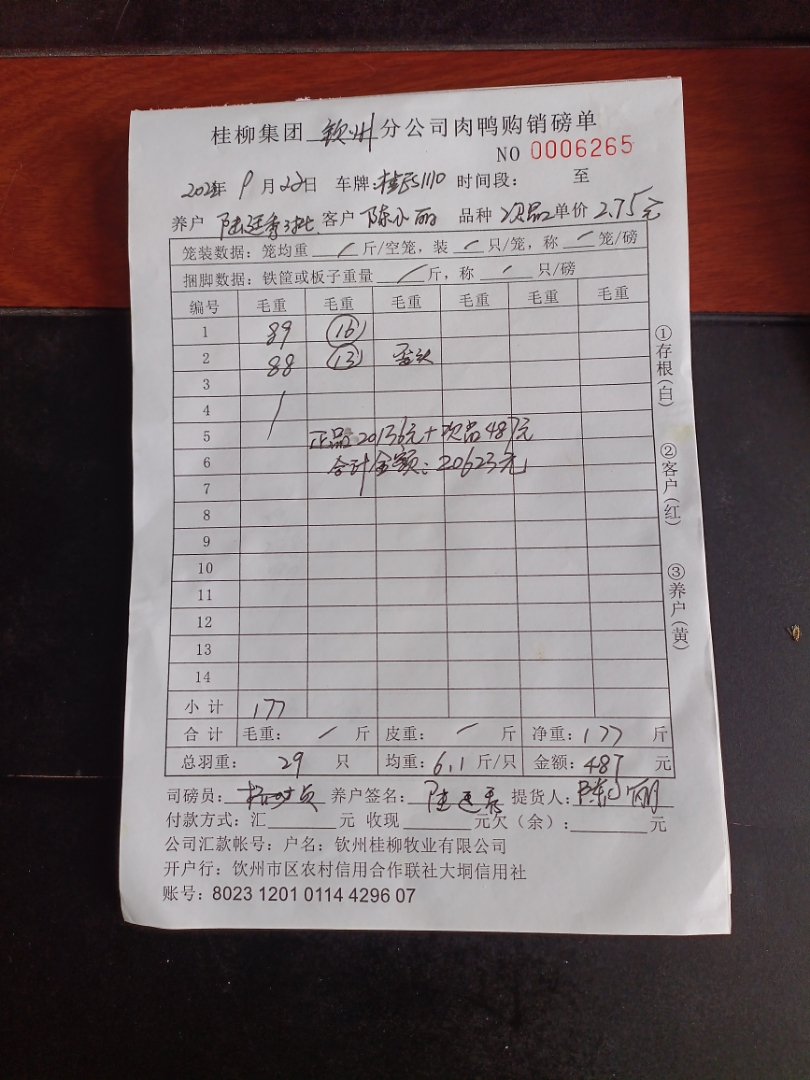 桂柳集团 钦州 分公司肉鸭购销磅单
NO 0006265
9月22日 车牌: 时间段: 至
养户 客户 陈小丽 品种 次品 单价 2.75元
笼装数据: 笼均重 / 斤/空笼, 装 / 只/笼, 称 / 笼/磅
捆脚数据: 铁筐或板子重量 / 斤, 称 / 只/磅
编号 毛重 毛重 毛重 毛重 毛重 毛重
1 89 16
2 88 13 歪头
3
4 /
5 正品20136元+次品487元
6 合计金额: 20623元
7
8
9
10
11
12
13
14
小计 177
合计 毛重: / 斤 皮重: / 斤 净重: 177 斤
总羽重: 29 只 均重: 6.1 斤/只 金额: 487 元
司磅员: 养户签名: 提货人: 陈小丽
付款方式: 汇 元 收现 元欠(余): 元
公司汇款帐号: 户名: 钦州桂柳牧业有限公司
开户行: 钦州市区农村信用合作联社大垌信用社
账号: 8023 1201 0114 4296 07
①存根(白)
②客户(红)
③养户(黄)